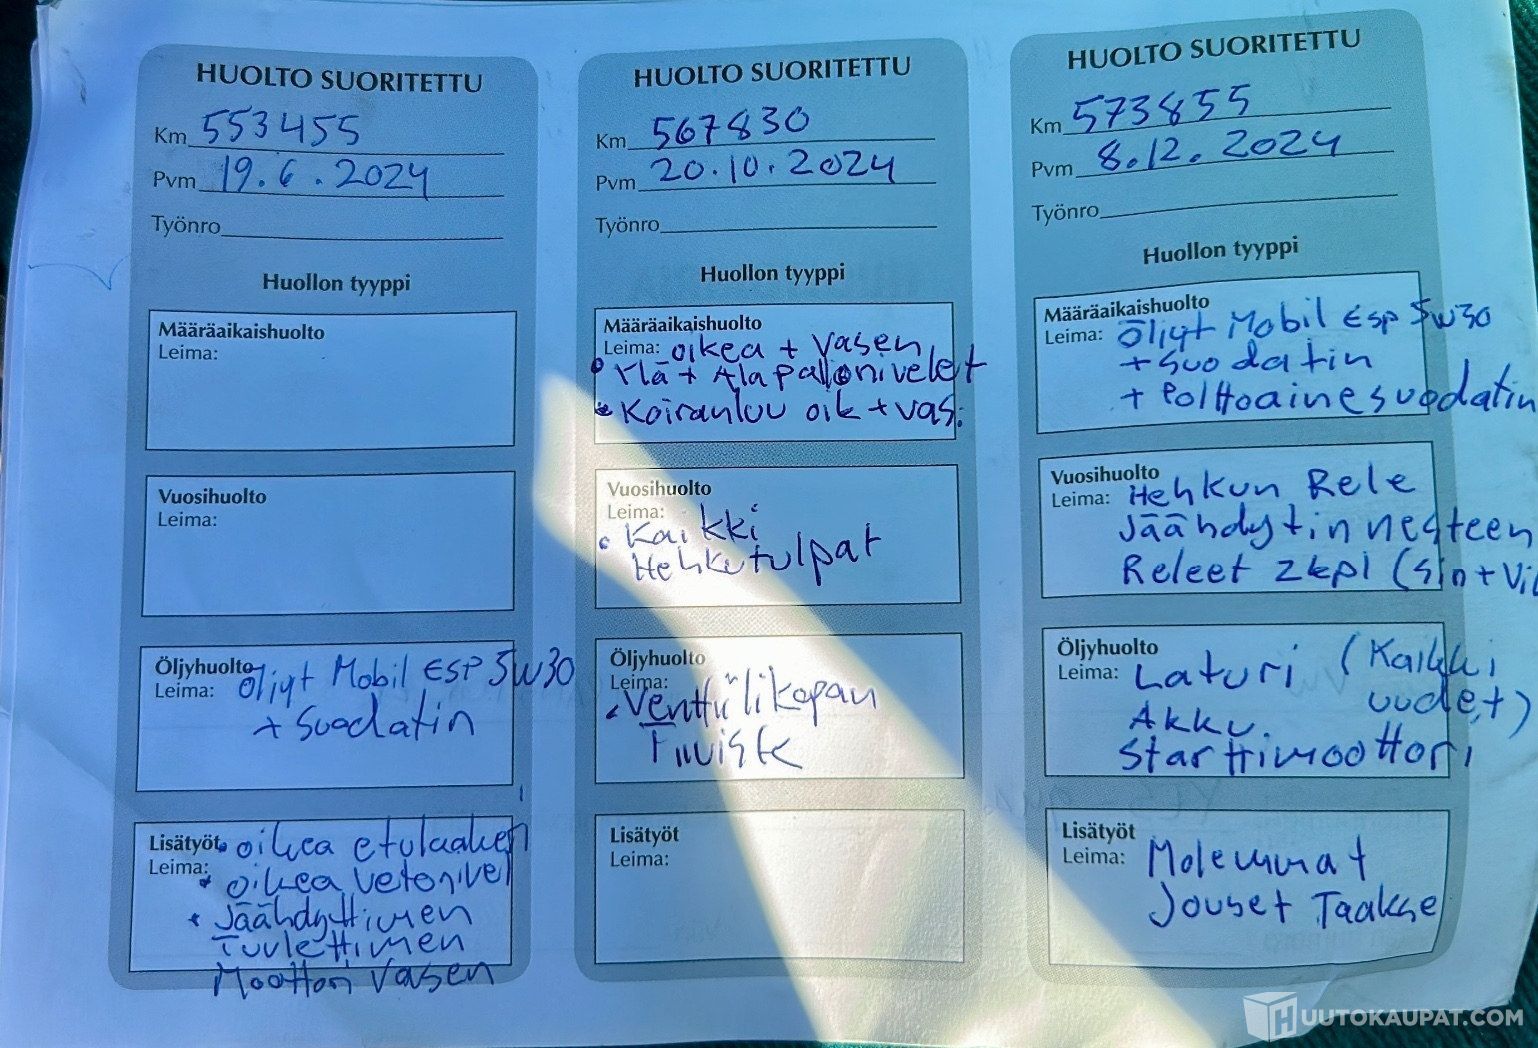 HUOLTO SUORITETTU
Km 553455
Pvm 19.6.2024
Työnro
Huollon tyyppi
Määräaikaishuolto
Leima:
Vuosihuolto
Leima:
Öljyhuolto
Leima: Öljyt Mobil ESP 5W30
+ Suodatin
Lisätyöt
Leima:
• oikea etulaakeri
• oikea vetonivel
• Jäähdyttimen
Tuulettimen
Moottori Vasen
HUOLTO SUORITETTU
Km 567830
Pvm 20.10.2024
Työnro
Huollon tyyppi
Määräaikaishuolto
Leima: oikea + Vasen
• Ylä + Ala pallonivelet
• Koiranluu oik + vas.
Vuosihuolto
Leima:
• Kaikki
Hehkutulpat
Öljyhuolto
Leima:
• Venttiilikopan
Tiiviste
Lisätyöt
Leima:
HUOLTO SUORITETTU
Km 573855
Pvm 8.12.2024
Työnro
Huollon tyyppi
Määräaikaishuolto
Leima: Öljyt Mobil ESP 5W30
+ Suodatin
+ Polttoainesuodatin
Vuosihuolto
Leima: Hehkun Rele
Jäähdytinnesteen
Releet 2kpl (Sin +
Öljyhuolto
Leima: Laturi (Kaikki
uudet)
Akku.
Starttimoottori
Lisätyöt
Leima: Molemmat
Jouset Taakse
HUUTOKAUPAT.COM